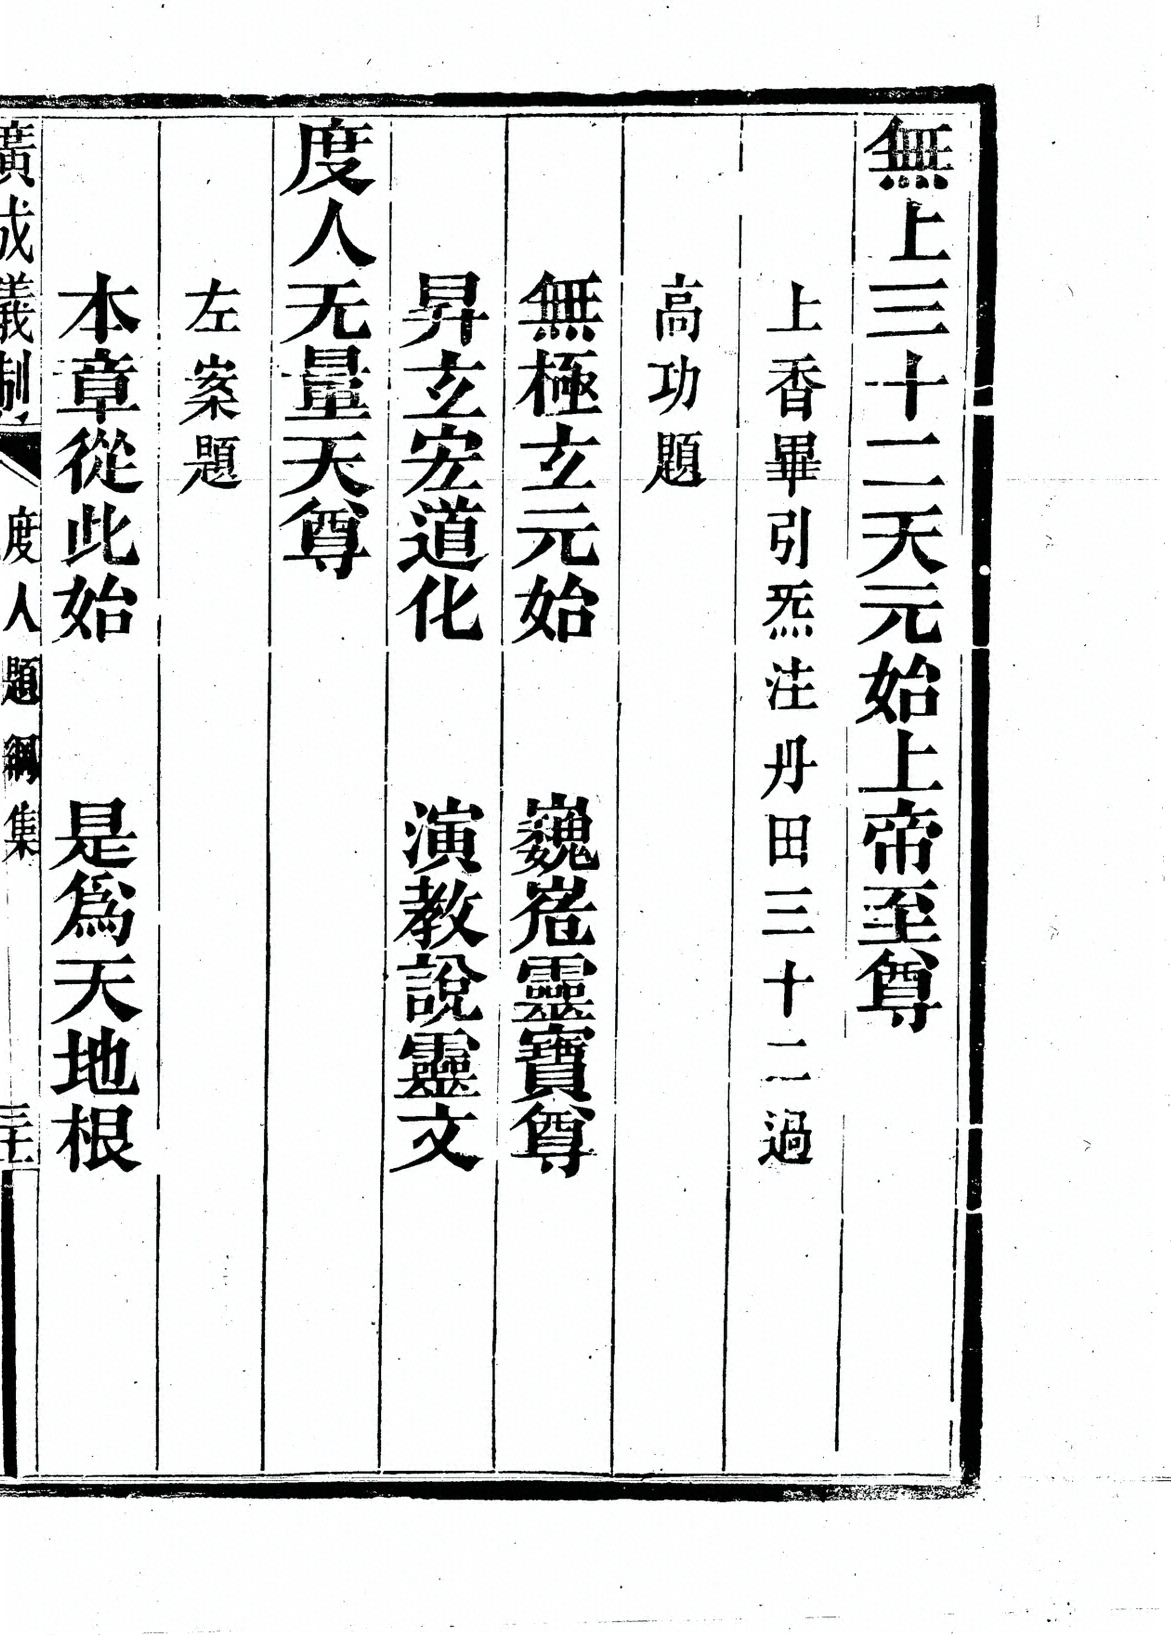 無上三十二天元始上帝至尊
上香畢引炁注丹田三十二過
高功題
無極玄元始　巍靈寶尊
昇玄宏道化　演教說靈文
度人无量天尊
左案題
本章從此始　是爲天地根
廣成儀制　度人題綱集